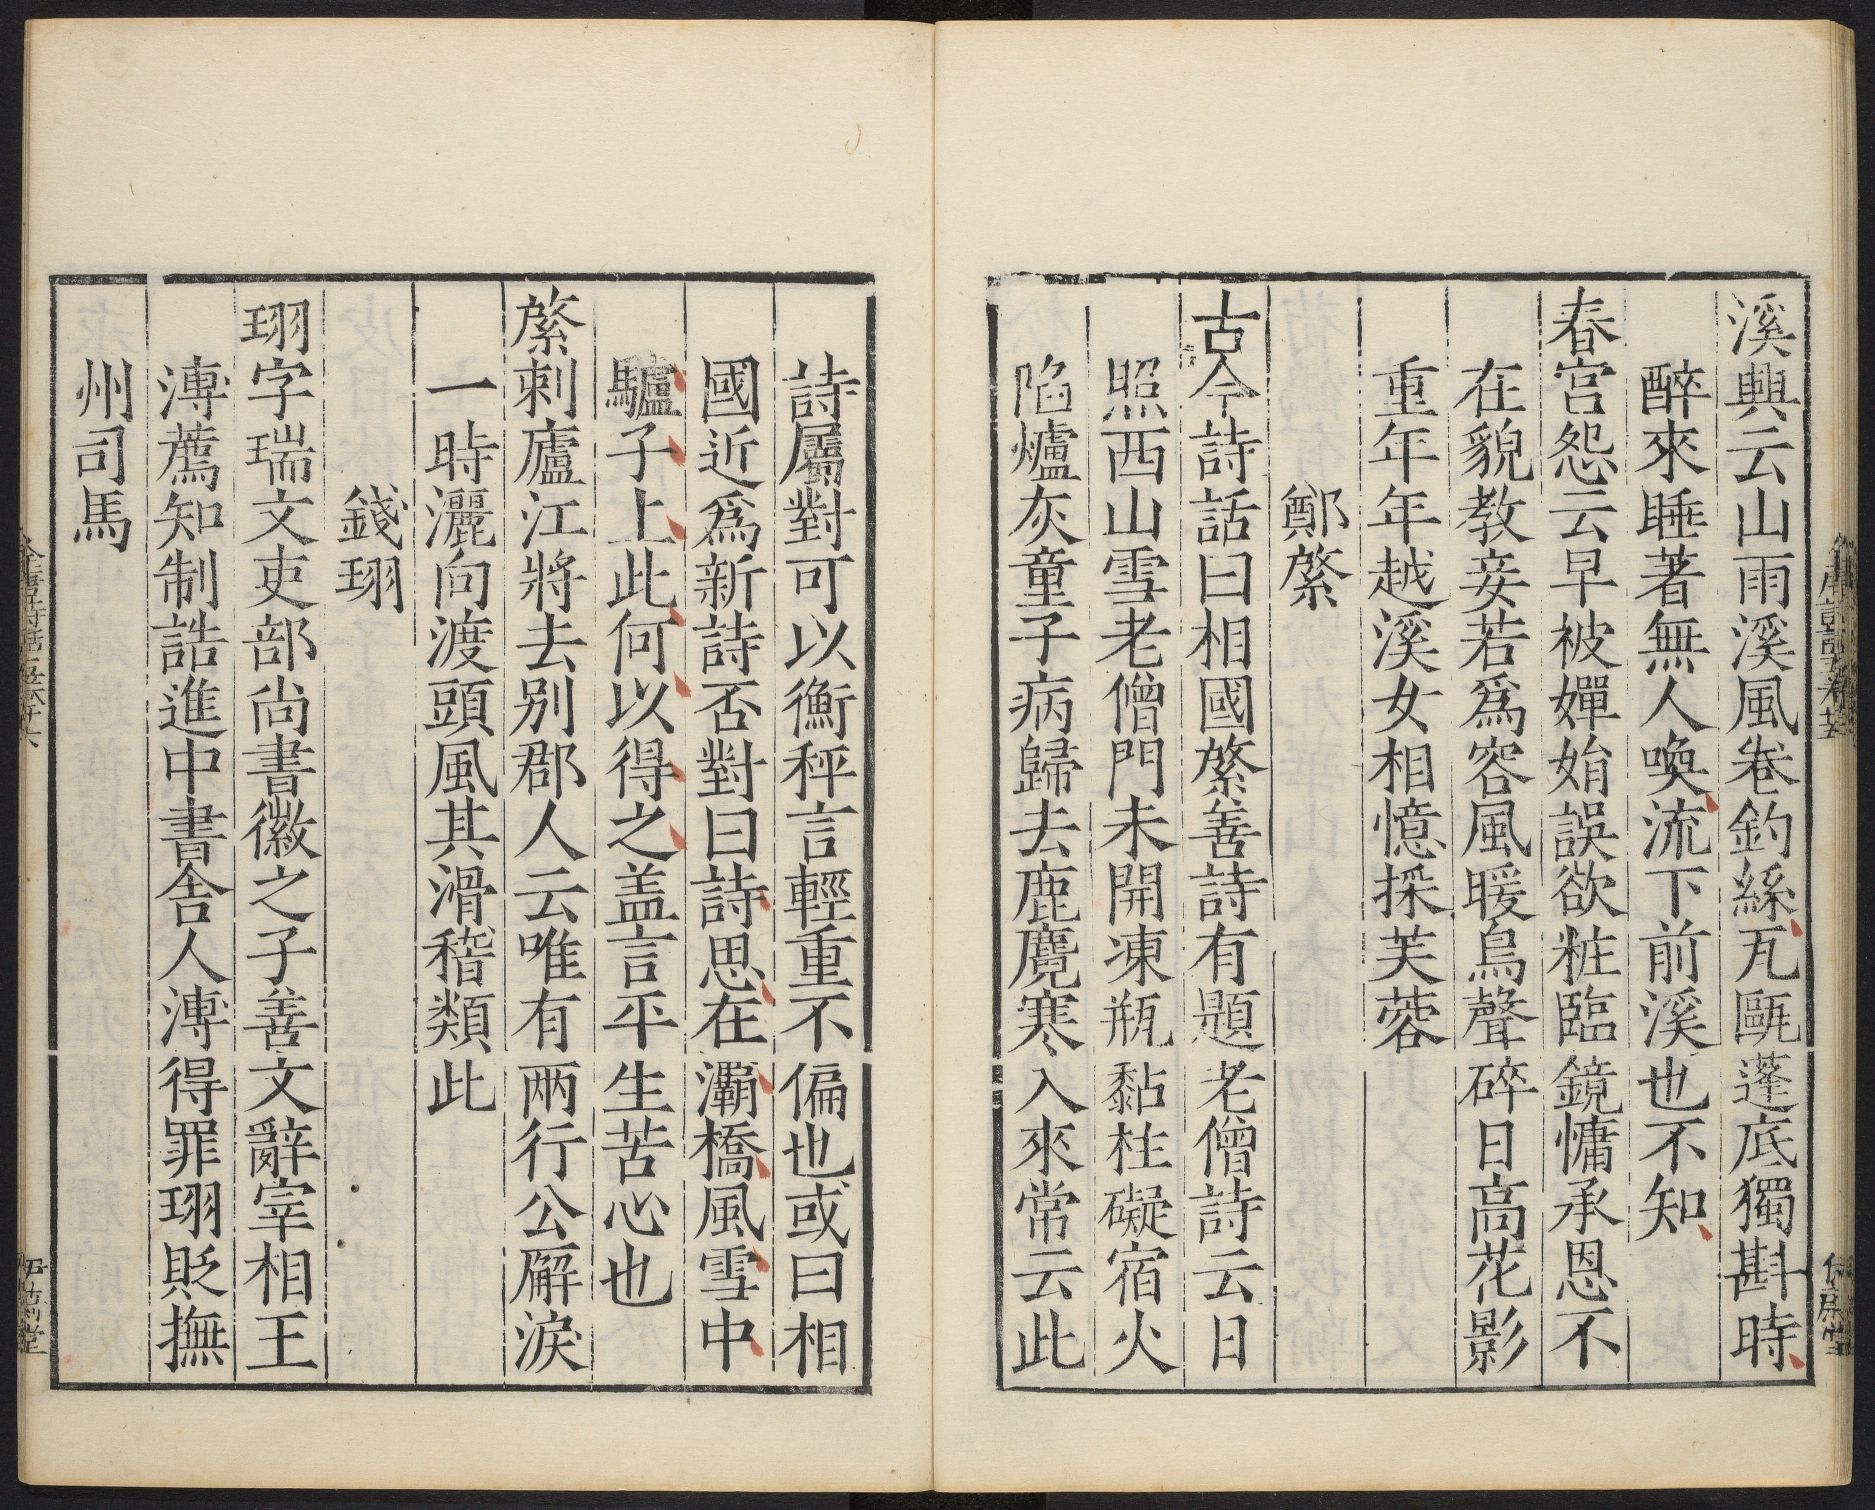 溪興云山雨溪風卷釣絲瓦甌蓬底獨斟時
醉來睡著無人喚流下前溪也不知
春宮怨云早被嬋娟誤欲粧臨鏡慵承恩不
在貌教妾若為容風暖鳥聲碎日高花影
重年年越溪女相憶採芙蓉
鄭綮
古今詩話曰相國綮善詩有題老僧詩云日
照西山雪老僧門未開凍瓶黏柱礎宿火
陷爐灰童子病歸去鹿麑寒入來常云此
詩屬對可以衡秤言輕重不偏也或曰相
國近為新詩否對曰詩思在灞橋風雪中
驢子上此何以得之盖言平生苦心也
綮刺廬江將去別郡人云唯有兩行公廨淚
一時灑向渡頭風其滑稽類此
錢珝
珝字瑞文吏部尚書徽之子善文辭宰相王
溥薦知制誥進中書舍人溥得罪珝貶撫
州司馬
全唐詩話卷五 廿六